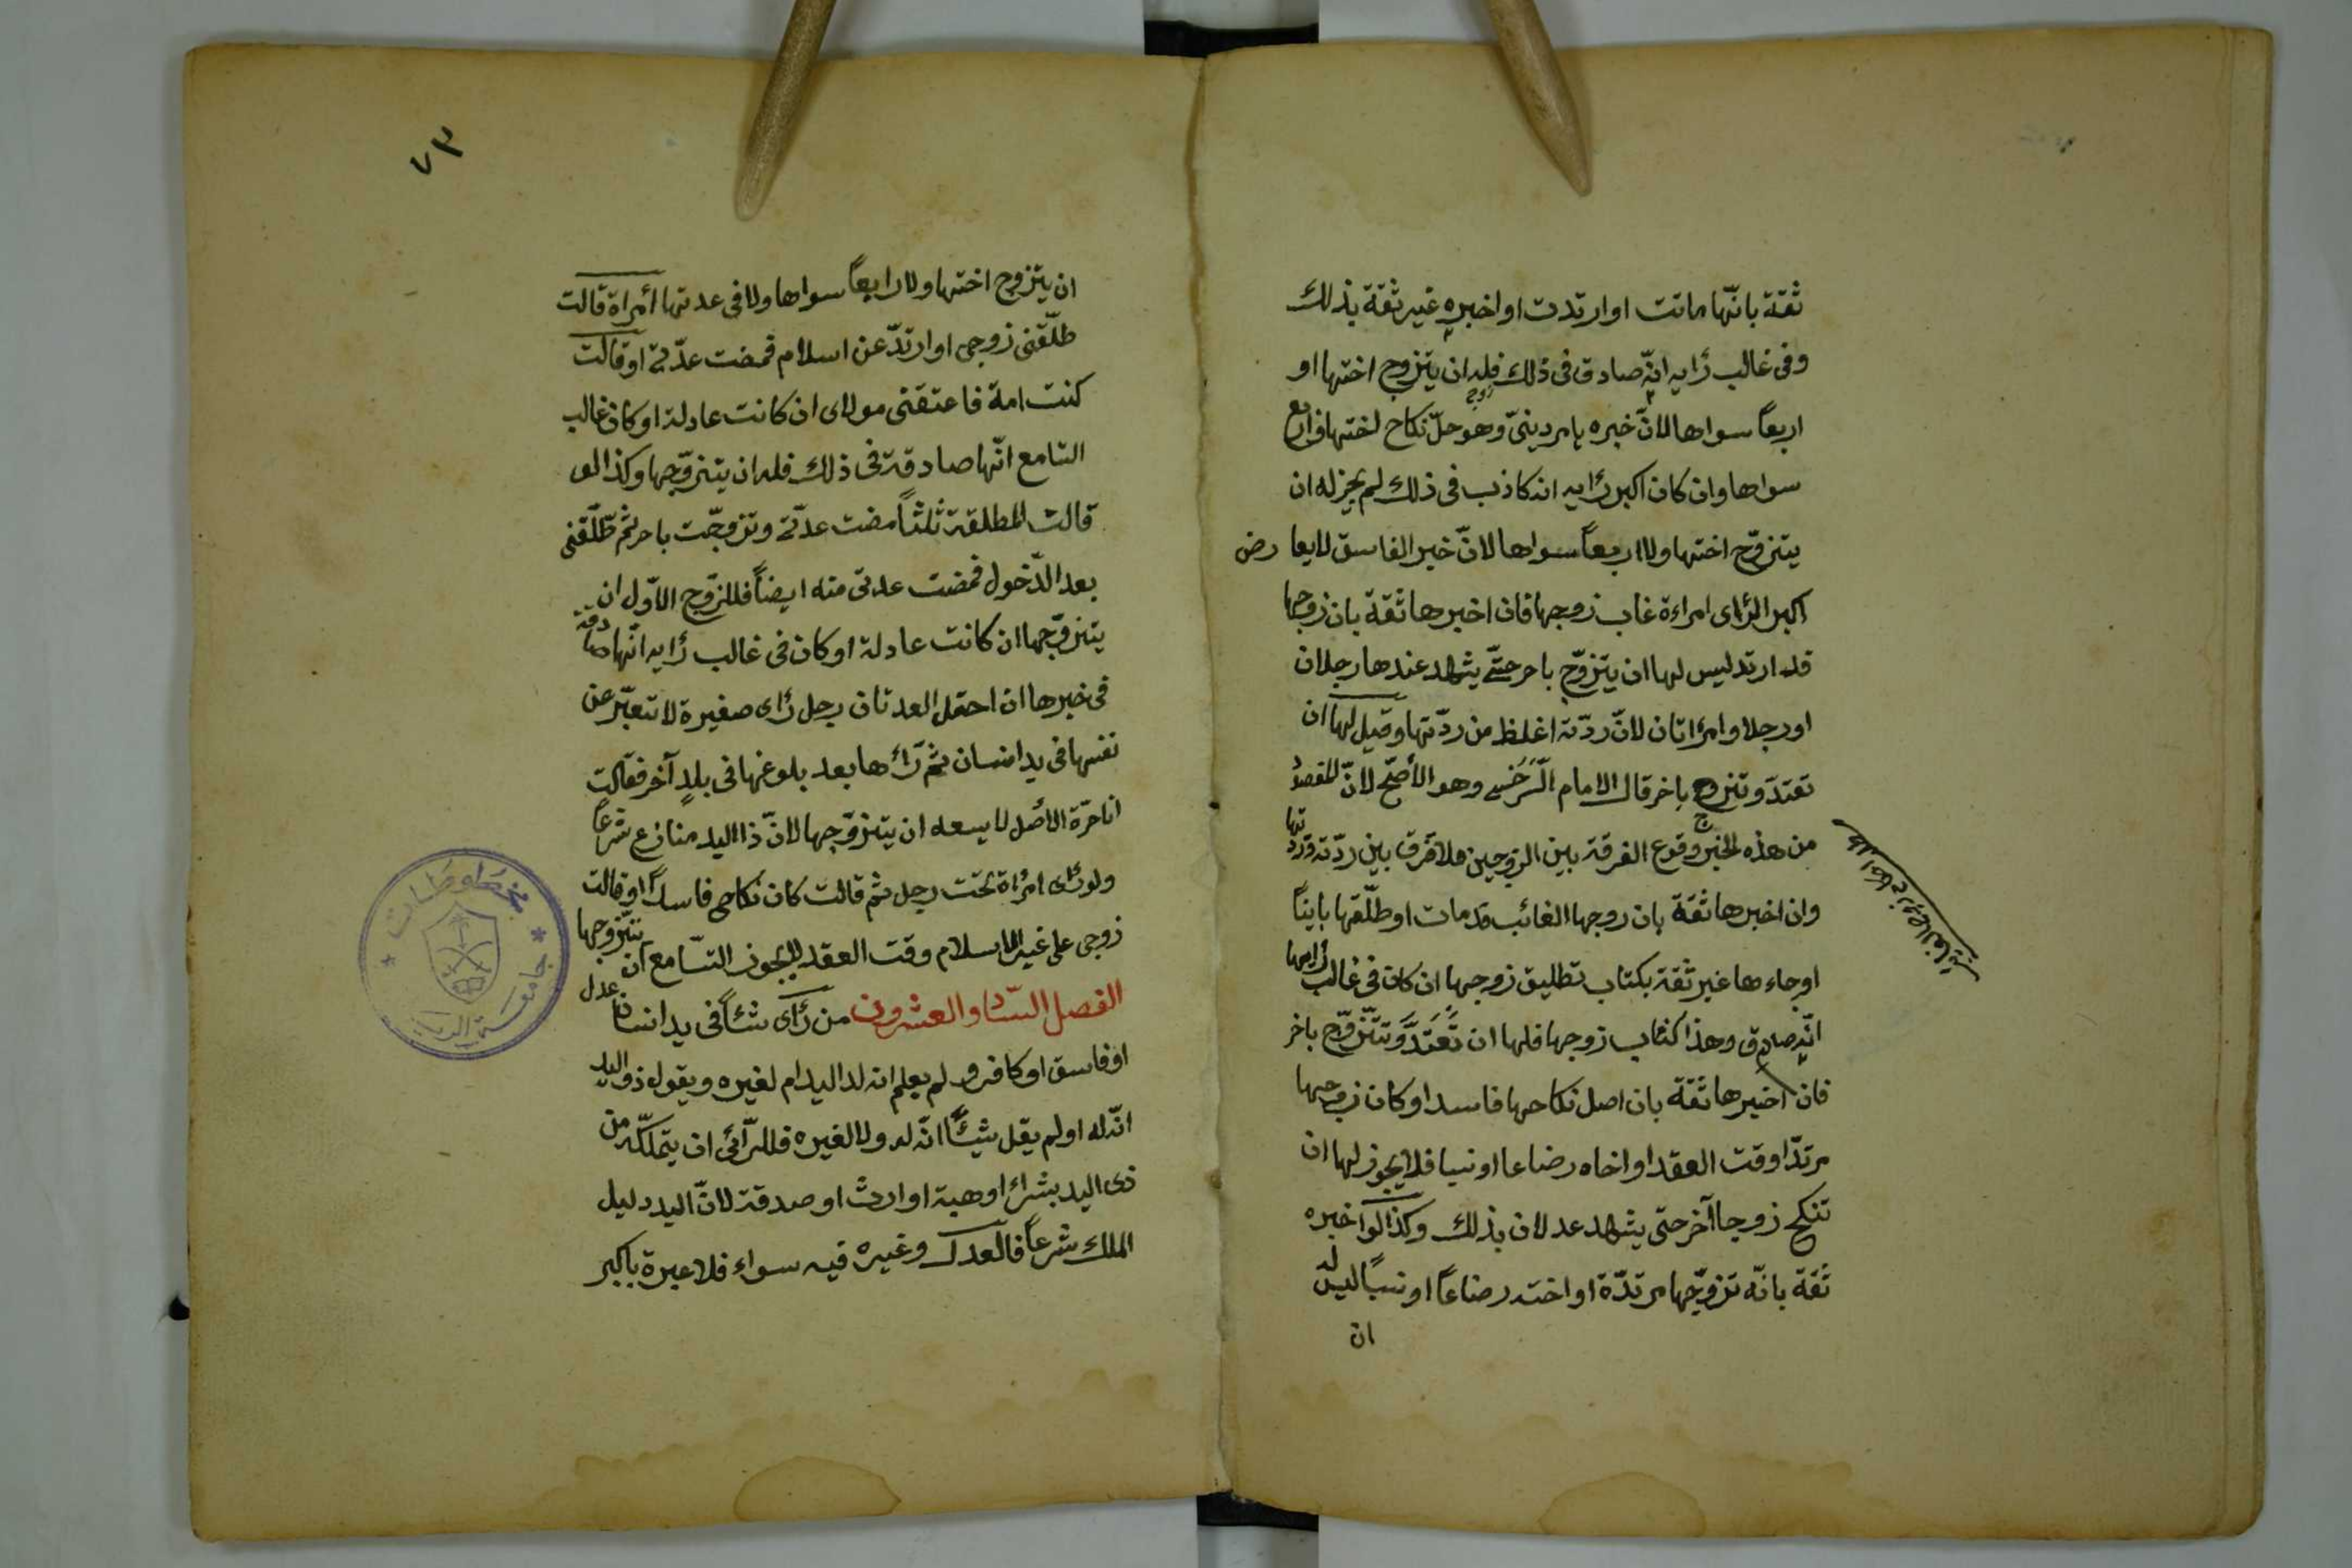 ثقة بانّها ماتت او ارتدت او اخبره غير ثقة بذلك
وفى غالب رأيه انّه صادق فى ذلك فله ان يتزوج اختها او
اربعاً سواها لانّ خبره بامر دينىّ وهو حلّ نكاح اختها واربع
سواها وان كان اكبر رأيه انه كاذب فى ذلك لم يجز له ان
يتزوّج اختها ولا اربعاً سواها لانّ خبر الفاسق لا يعارض
اكبر الرأى امراءة غاب زوجها فان اخبرها ثقة بان زوجها
قد ارتد ليس لها ان يتزوّج باخر حتّى يشهد عندها رجلان
او رجلا وامرأتان لانّ ردّته اغلظ من ردّتها وقيل لها ان
تعتدّ وتتزوج باخر قال الامام السَّرَخْسى وهو الأصحّ لانّ المقصود
من هذه الخبر وقوع الفرقة بين الزوجين فلا فرق بين ردّته وردّتها
وان اخبرها ثقة بان زوجها الغائب قد مات او طلّقها بايناً
اوجاءها غير ثقة بكتاب تطليق زوجها ان كان فى غالب رأيها
انّه صادق وهذا كتاب زوجها فلها ان تَعْتَدَّ وَتتزوّج باخر
فان اخبرها ثقة بان اصل نكاحها فاسد او كان زوجها
مرتدّا وقت العقد او اخاه رضاعا او نسبا فلا يجوز لها ان
تنكح زوجا آخر حتى يشهد عدلان بذلك وكذا لو اخبره
ثقة بانّه تزوّجها مرتدّة او اخته رضاعاً او نسباً ليس له
ان
٧٣
ان يتزوج اختها ولا رابعاً سواها ولا فى عدتها امرأة قالت
طلّقنى زوجى او ارتدّ عن اسلام فمضت عدّتى او قالت
كنت امة فاعتقنى مولاى ان كانت عادلة او كان غالب
السّامع انّها صادقة فى ذلك فله ان يتزوّجها وكذا لو
قالت المطلقة ثلثاً مضت عدّتى وتزوجّت باخر ثم طلّقنى
بعد الدّخول فمضت عدتى منه ايضاً فللزّوج الاوّل ان
يتزوّجها ان كانت عادلة او كان فى غالب رأيه انّها صادقة
فى خبرها ان احتمل العدتان رجل رأى صغيرة لا تتعبّر عن
نفسها فى يد انسان ثم رأها بعد بلوغها فى بلدٍ آخر فقالت
انا حرّة الأصل لا يسعه ان يتزوّجها لانّ ذا اليد منازع شرعاً
ولو رأى امرأة تحت رجل ثم قالت كان نكاحى فاسداً او قالت
زوجى على غير الاسلام وقت العقد لا يجوز للسّامع ان يتزوجها
الفصل السّادس والعشرون من رَأى شئاً فى يد انسان عدل
او فاسق او كافر ولم يعلم انه لذا اليد ام لغيره ويقول ذو اليد
انّه له او لم يقل شيئاً انّه له ولا لغيره فللرّائى ان يتملّكه من
ذى اليد بشراء او هبة او ارث او صدقة لانّ اليد دليل
الملك شرعاً فالعدل وغيره فيه سواء فلا عبرة باكبر
مخطوطات
جامعة الرياض